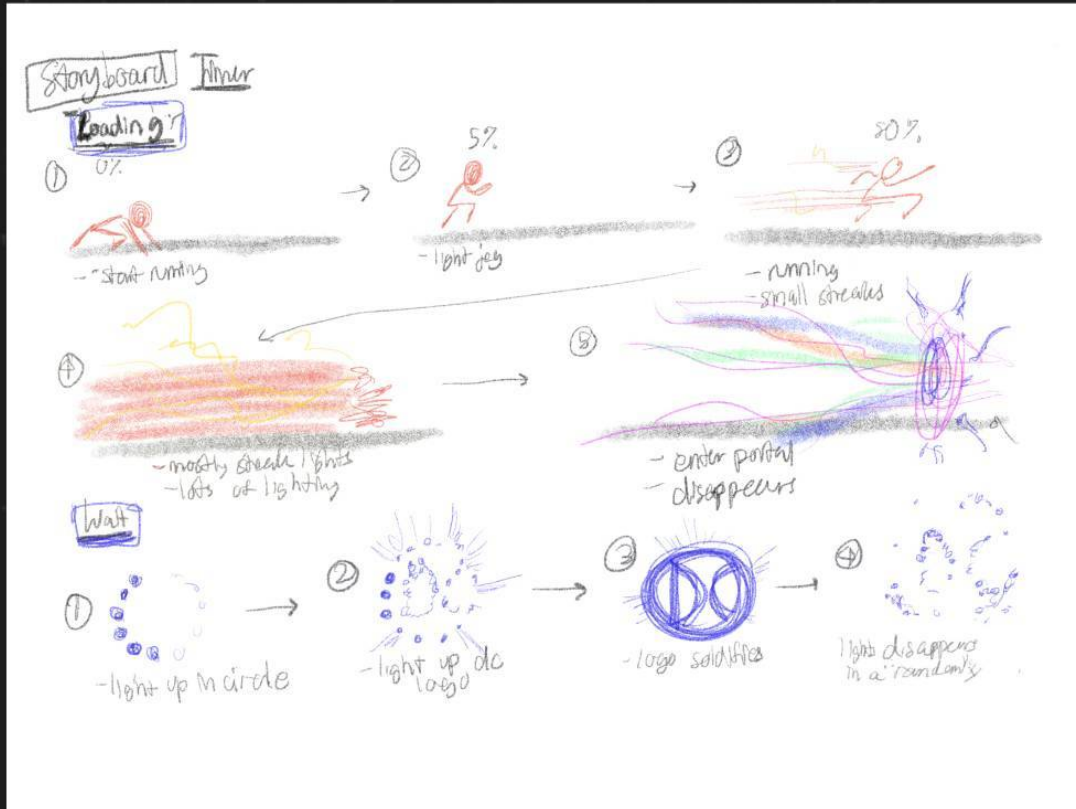 Storyboard Timer
Loading:
① 0%
② 5%
③ 80%
- "start running
- light jog
- running
- small streaks
④
⑤
- mostly streak lights
- lots of lighting
- enter portal
- disappears
Wait
①
②
③
④
- light up in circle
- light up dc
logo
- logo soldifies
light disappears
in a "randomly